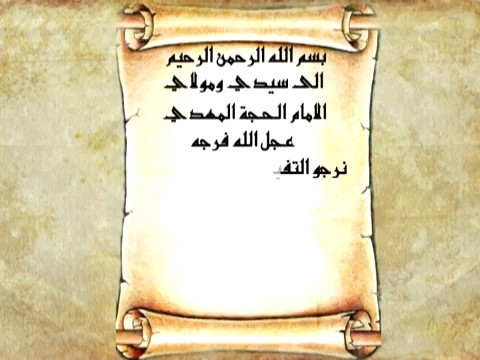 بسم الله الرحمن الرحيم
الى سيدي ومولاي
الامام الحجة المهدي
عجل الله فرجه
نرجو